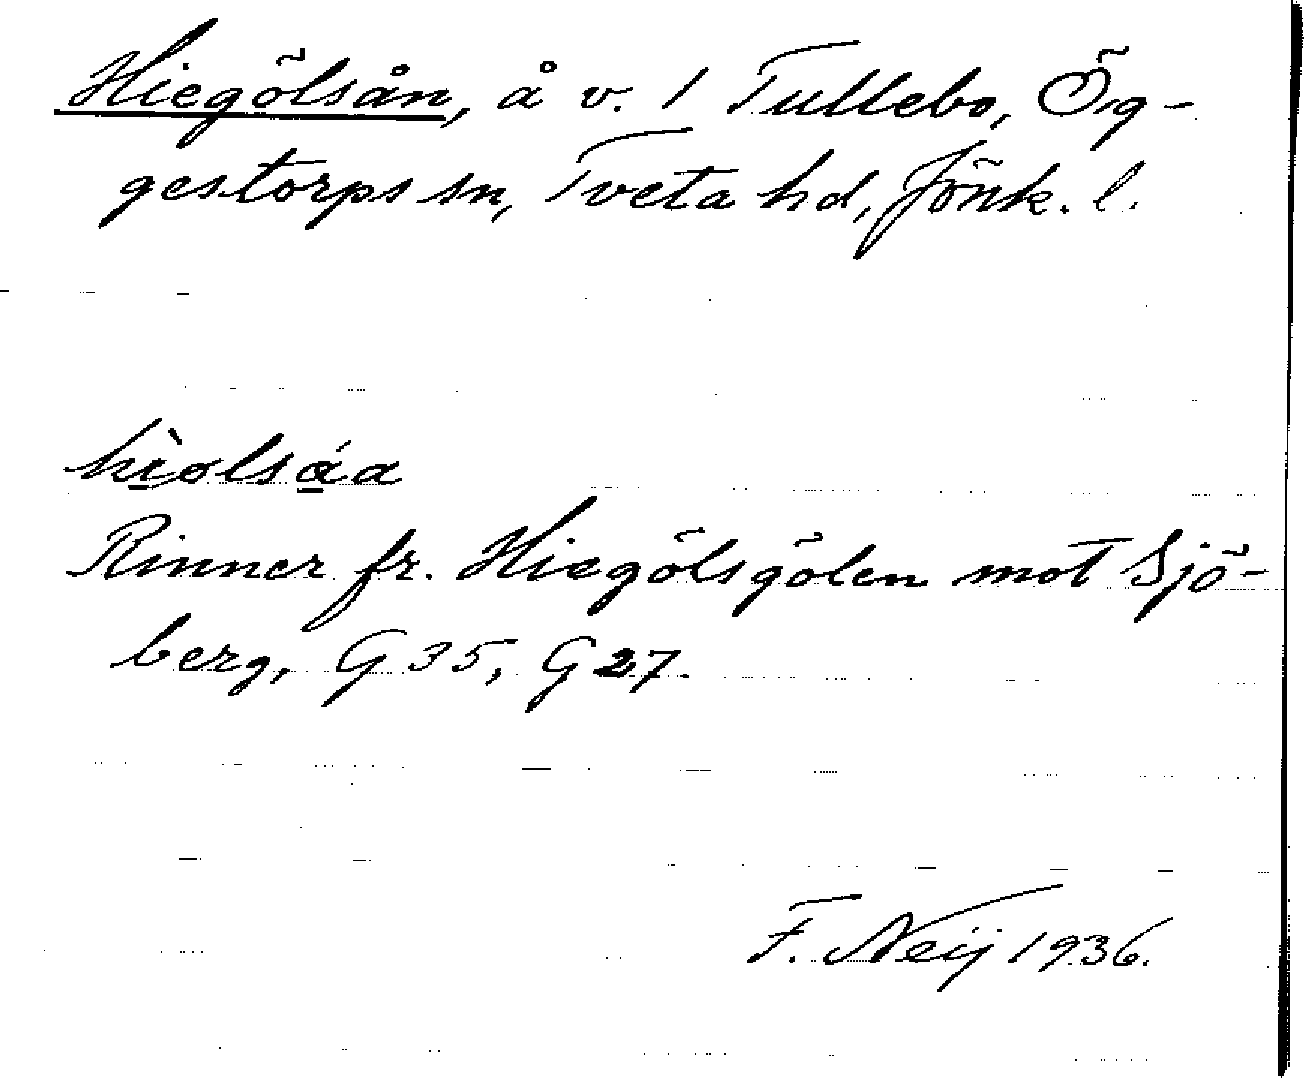 Hiegölsån, å v. 1 Tullebo, Ög-
gestorps sn, Tveta hd, Jönk. l.
hìolsáa
Rinner fr. Hiegölsgölen mot Sjö-
berg, G 35, G 27.
F. Neij 1936.